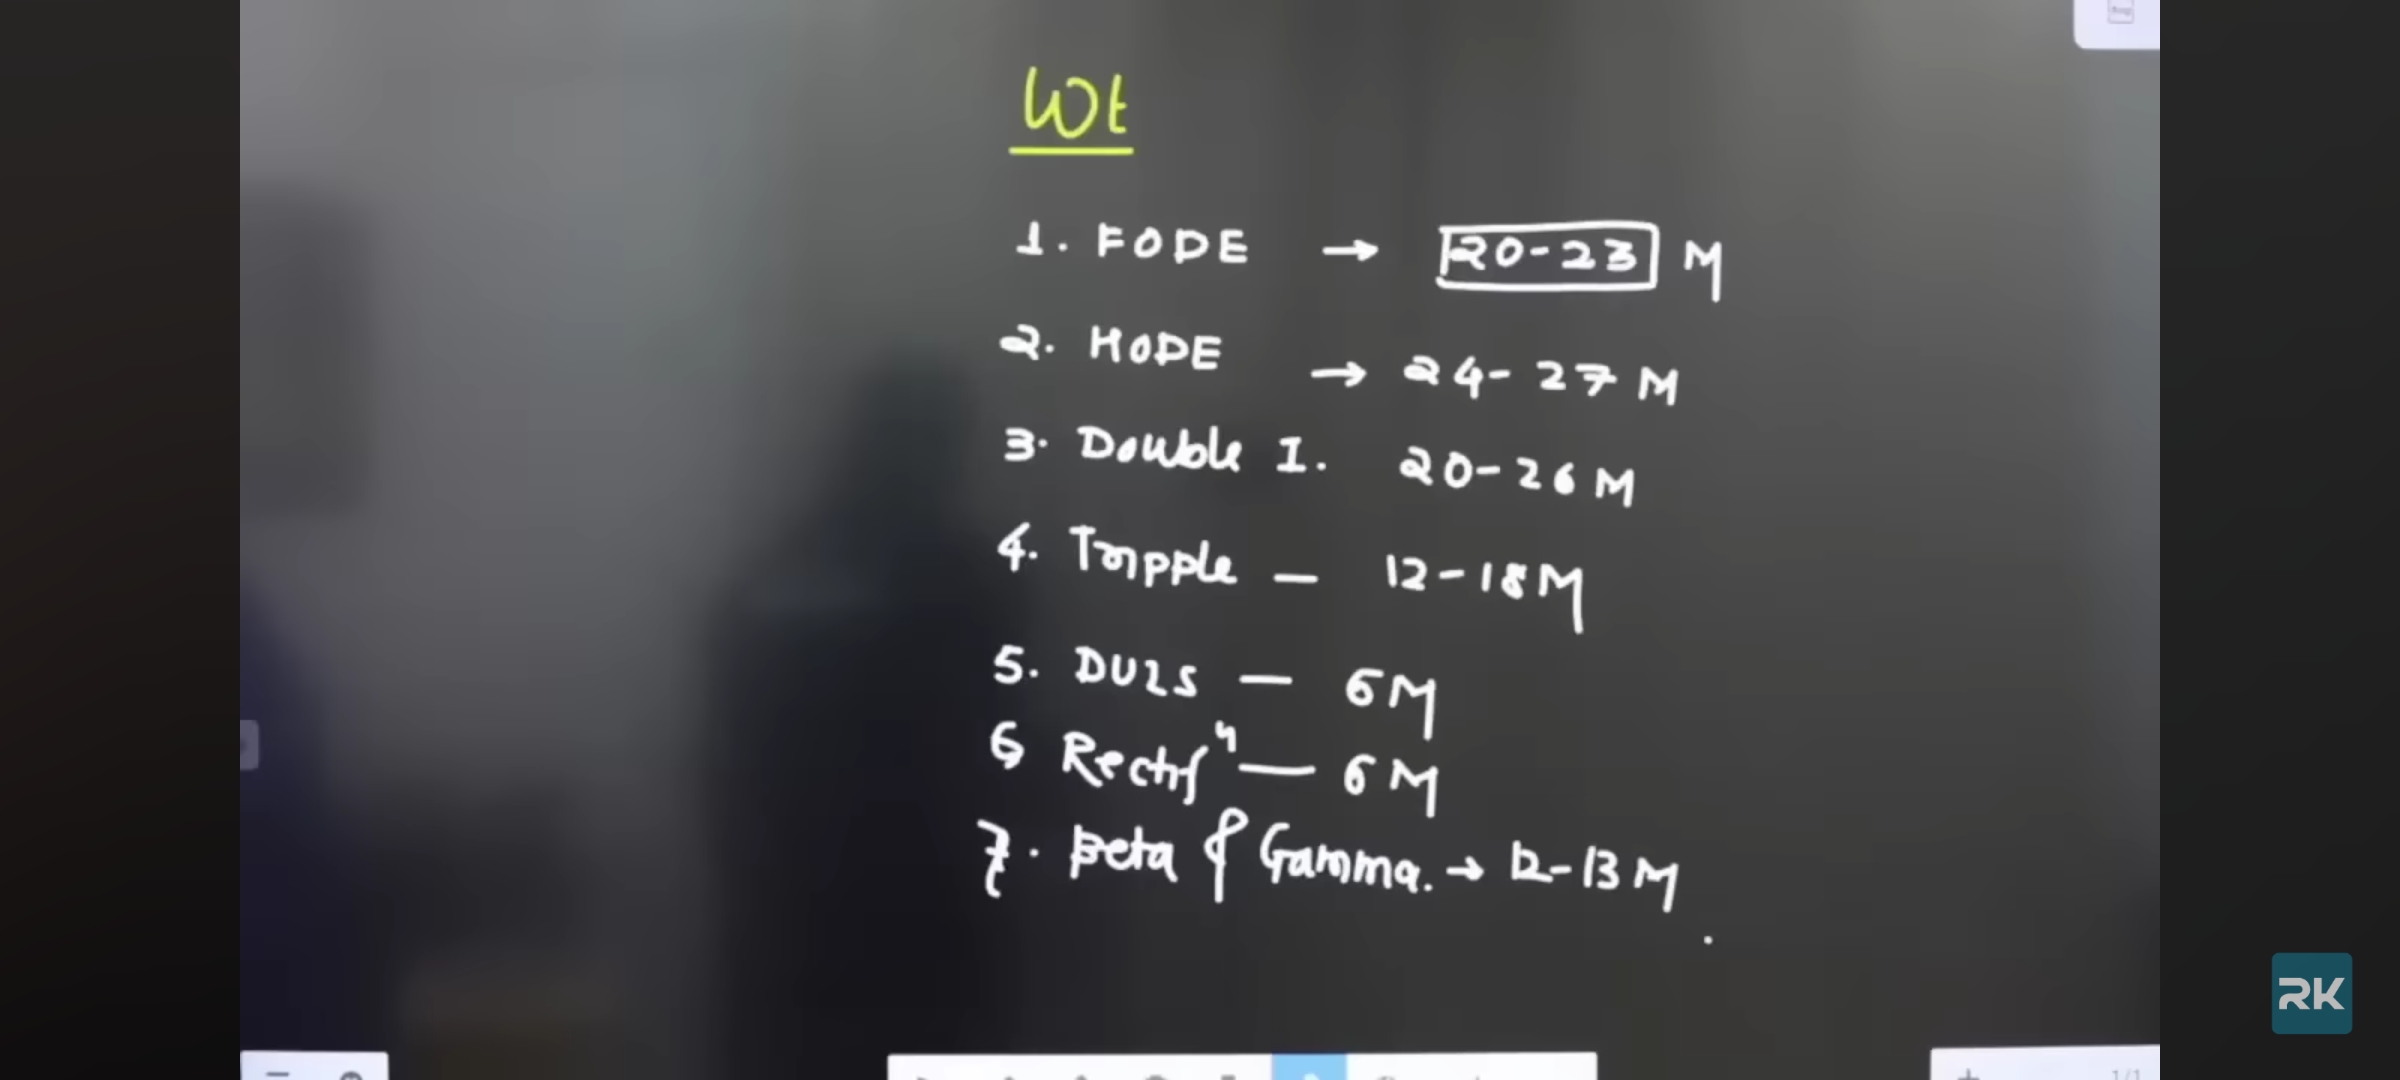 Wt
1. FODE → 20-23 M
2. HODE → 24-27 M
3. Double I. 20-26 M
4. Tripple — 12-18 M
5. DUIS — 6 M
6 Rectfⁿ — 6 M
7. Beta & Gamma. → 12-13 M
RK